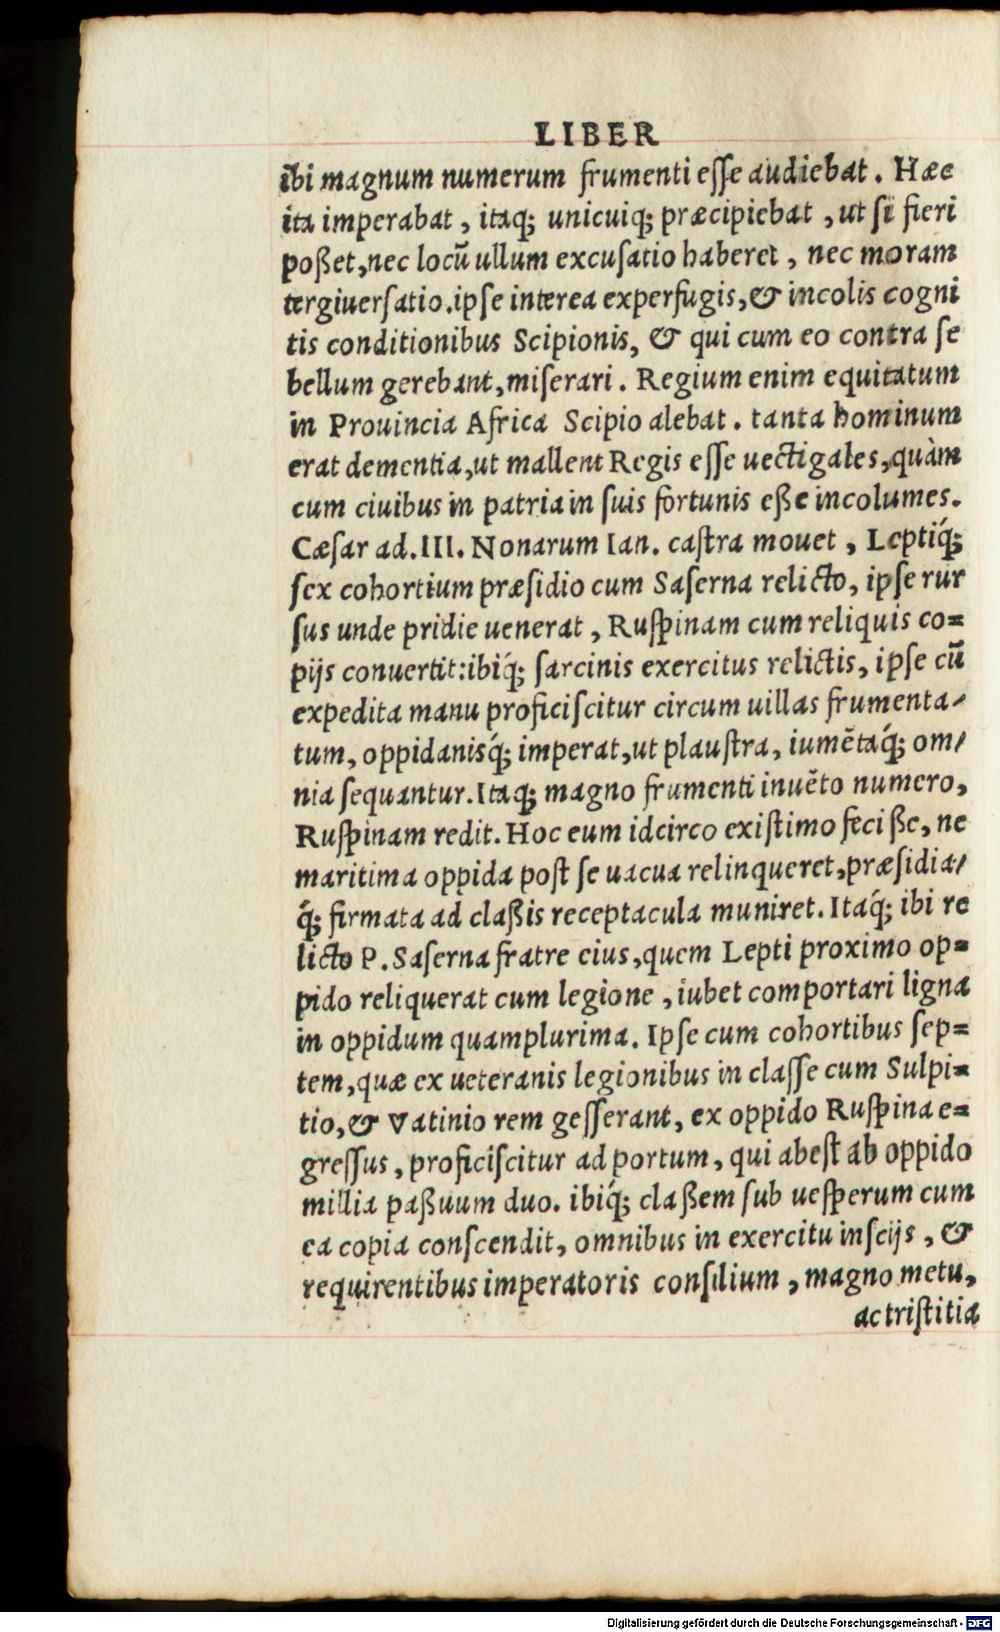 LIBER
ibi magnum numerum frumenti eſſe audiebat. Hæc
ita imperabat, itaq; unicuiq; præcipiebat, ut ſi fieri
poßet, nec locũ ullum excuſatio haberet, nec moram
tergiuerſatio. ipſe interea experfugis, & incolis cogni
tis conditionibus Scipionis, & qui cum eo contra ſe
bellum gerebant, miſerari. Regium enim equitatum
in Prouincia Africa Scipio alebat. tanta hominum
erat dementia, ut mallent Regis eſſe uectigales, quàm
cum ciuibus in patria in ſuis fortunis eße incolumes.
Cæſar ad. III. Nonarum Ian. caſtra mouet, Leptiq́;
ſex cohortium præſidio cum Saſerna relicto, ipſe rur
ſus unde pridie uenerat, Ruſpinam cum reliquis co=
pijs conuertit: ibiq́; ſarcinis exercitus relictis, ipſe cũ
expedita manu proficiſcitur circum uillas frumenta/
tum, oppidanisq́; imperat, ut plauſtra, iumẽtaq́; om/
nia ſequantur. Itaq; magno frumenti inuẽto numero,
Ruſpinam redit. Hoc eum idcirco exiſtimo feciße, ne
maritima oppida poſt ſe uacua relinqueret, præſidia/
q́; firmata ad claßis receptacula muniret. Itaq́; ibi re
licto P. Saſerna fratre eius, quem Lepti proximo op=
pido reliquerat cum legione, iubet comportari ligna
in oppidum quamplurima. Ipſe cum cohortibus ſep=
tem, quæ ex ueteranis legionibus in claſſe cum Sulpi=
tio, & Vatinio rem geſſerant, ex oppido Ruſpina e=
greſſus, proficiſcitur ad portum, qui abeſt ab oppido
millia paßuum duo. ibiq́; claßem ſub ueſperum cum
ea copia conſcendit, omnibus in exercitu inſcijs, &
requirentibus imperatoris conſilium, magno metu,
ac triſtitia
Digitalisierung gefördert durch die Deutsche Forschungsgemeinschaft - DFG